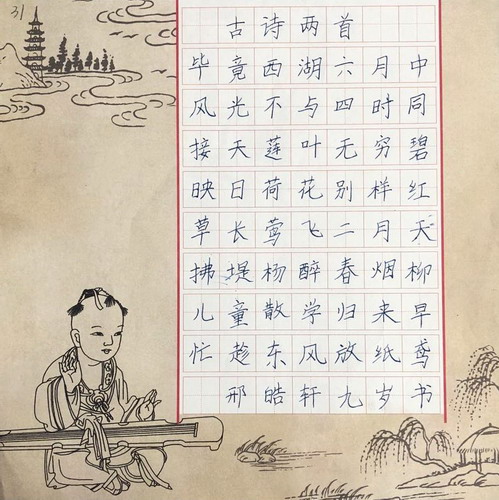 31
古诗两首
毕竟西湖六月中
风光不与四时同
接天莲叶无穷碧
映日荷花别样红
草长莺飞二月天
拂堤杨醉春烟柳
儿童散学归来早
忙趁东风放纸鸢
邢皓轩九岁书